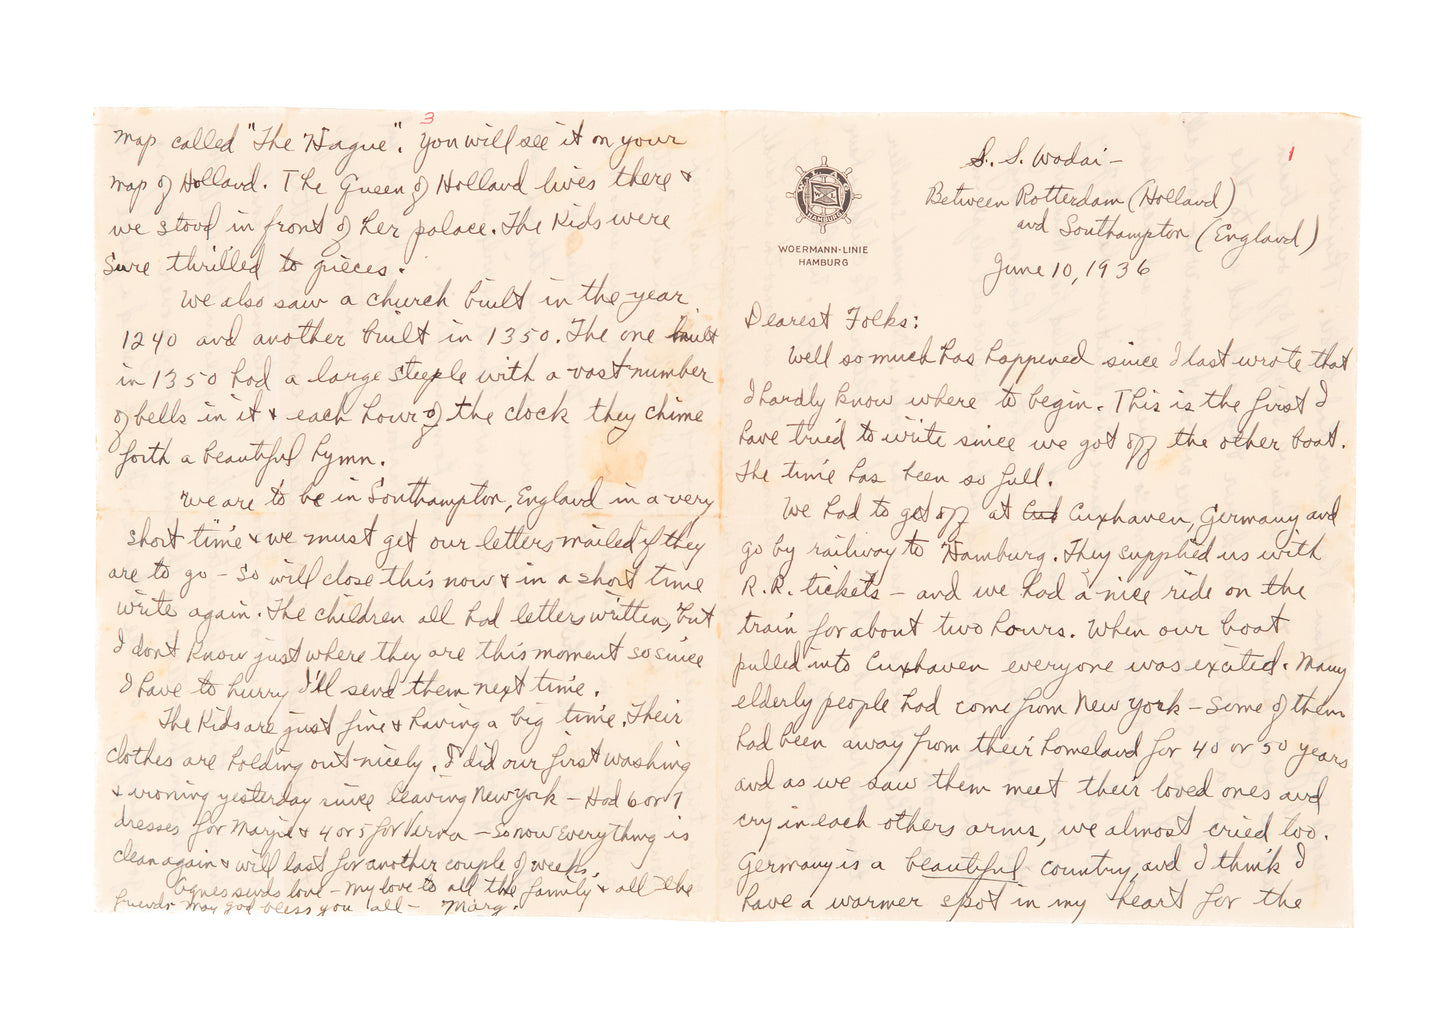 1
W.A.L.A.G.
HAMBURG
WOERMANN-LINIE
HAMBURG
S. S. Wadai –
Between Rotterdam (Holland)
and Southampton (England)
June 10, 1936
Dearest Folks:
Well so much has happened since I last wrote that
I hardly know where to begin. This is the first I
have tried to write since we got off the other boat.
The time has been so full.
We had to get off at Cux Cuxhaven, Germany and
go by railway to Hamburg. They supplied us with
R.R. tickets – and we had a nice ride on the
train for about two hours. When our boat
pulled into Cuxhaven everyone was excited. Many
elderly people had come from New York – Some of them
had been away from their homeland for 40 or 50 years
and as we saw them meet their loved ones and
cry in each others arms, we almost cried too.
Germany is a beautiful country, and I think I
have a warmer spot in my heart for the
3
map called "The Hague". You will see it on your
map of Holland. The Queen of Holland lives there &
we stood in front of her palace. The Kids were
sure thrilled to pieces.
We also saw a church built in the year
1240 and another built in 1350. The one built
in 1350 had a large steeple with a vast number
of bells in it & each hour of the clock they chime
forth a beautiful hymn.
We are to be in Southampton, England in a very
short time & we must get our letters mailed if they
are to go – So will close this now & in a short time
write again. The children all had letters written, but
I don't know just where they are this moment so since
I have to hurry I'll send them next time.
The Kids are just fine & having a big time. Their
clothes are holding out nicely. I did our first washing
& ironing yesterday since leaving New York – Had 6 or 7
dresses for Marjie & 4 or 5 for Verna – So now everything is
clean again & will last for another couple of weeks.
Agnes sends love – my love to all the family & all the
friends May God bless you all – Marg.